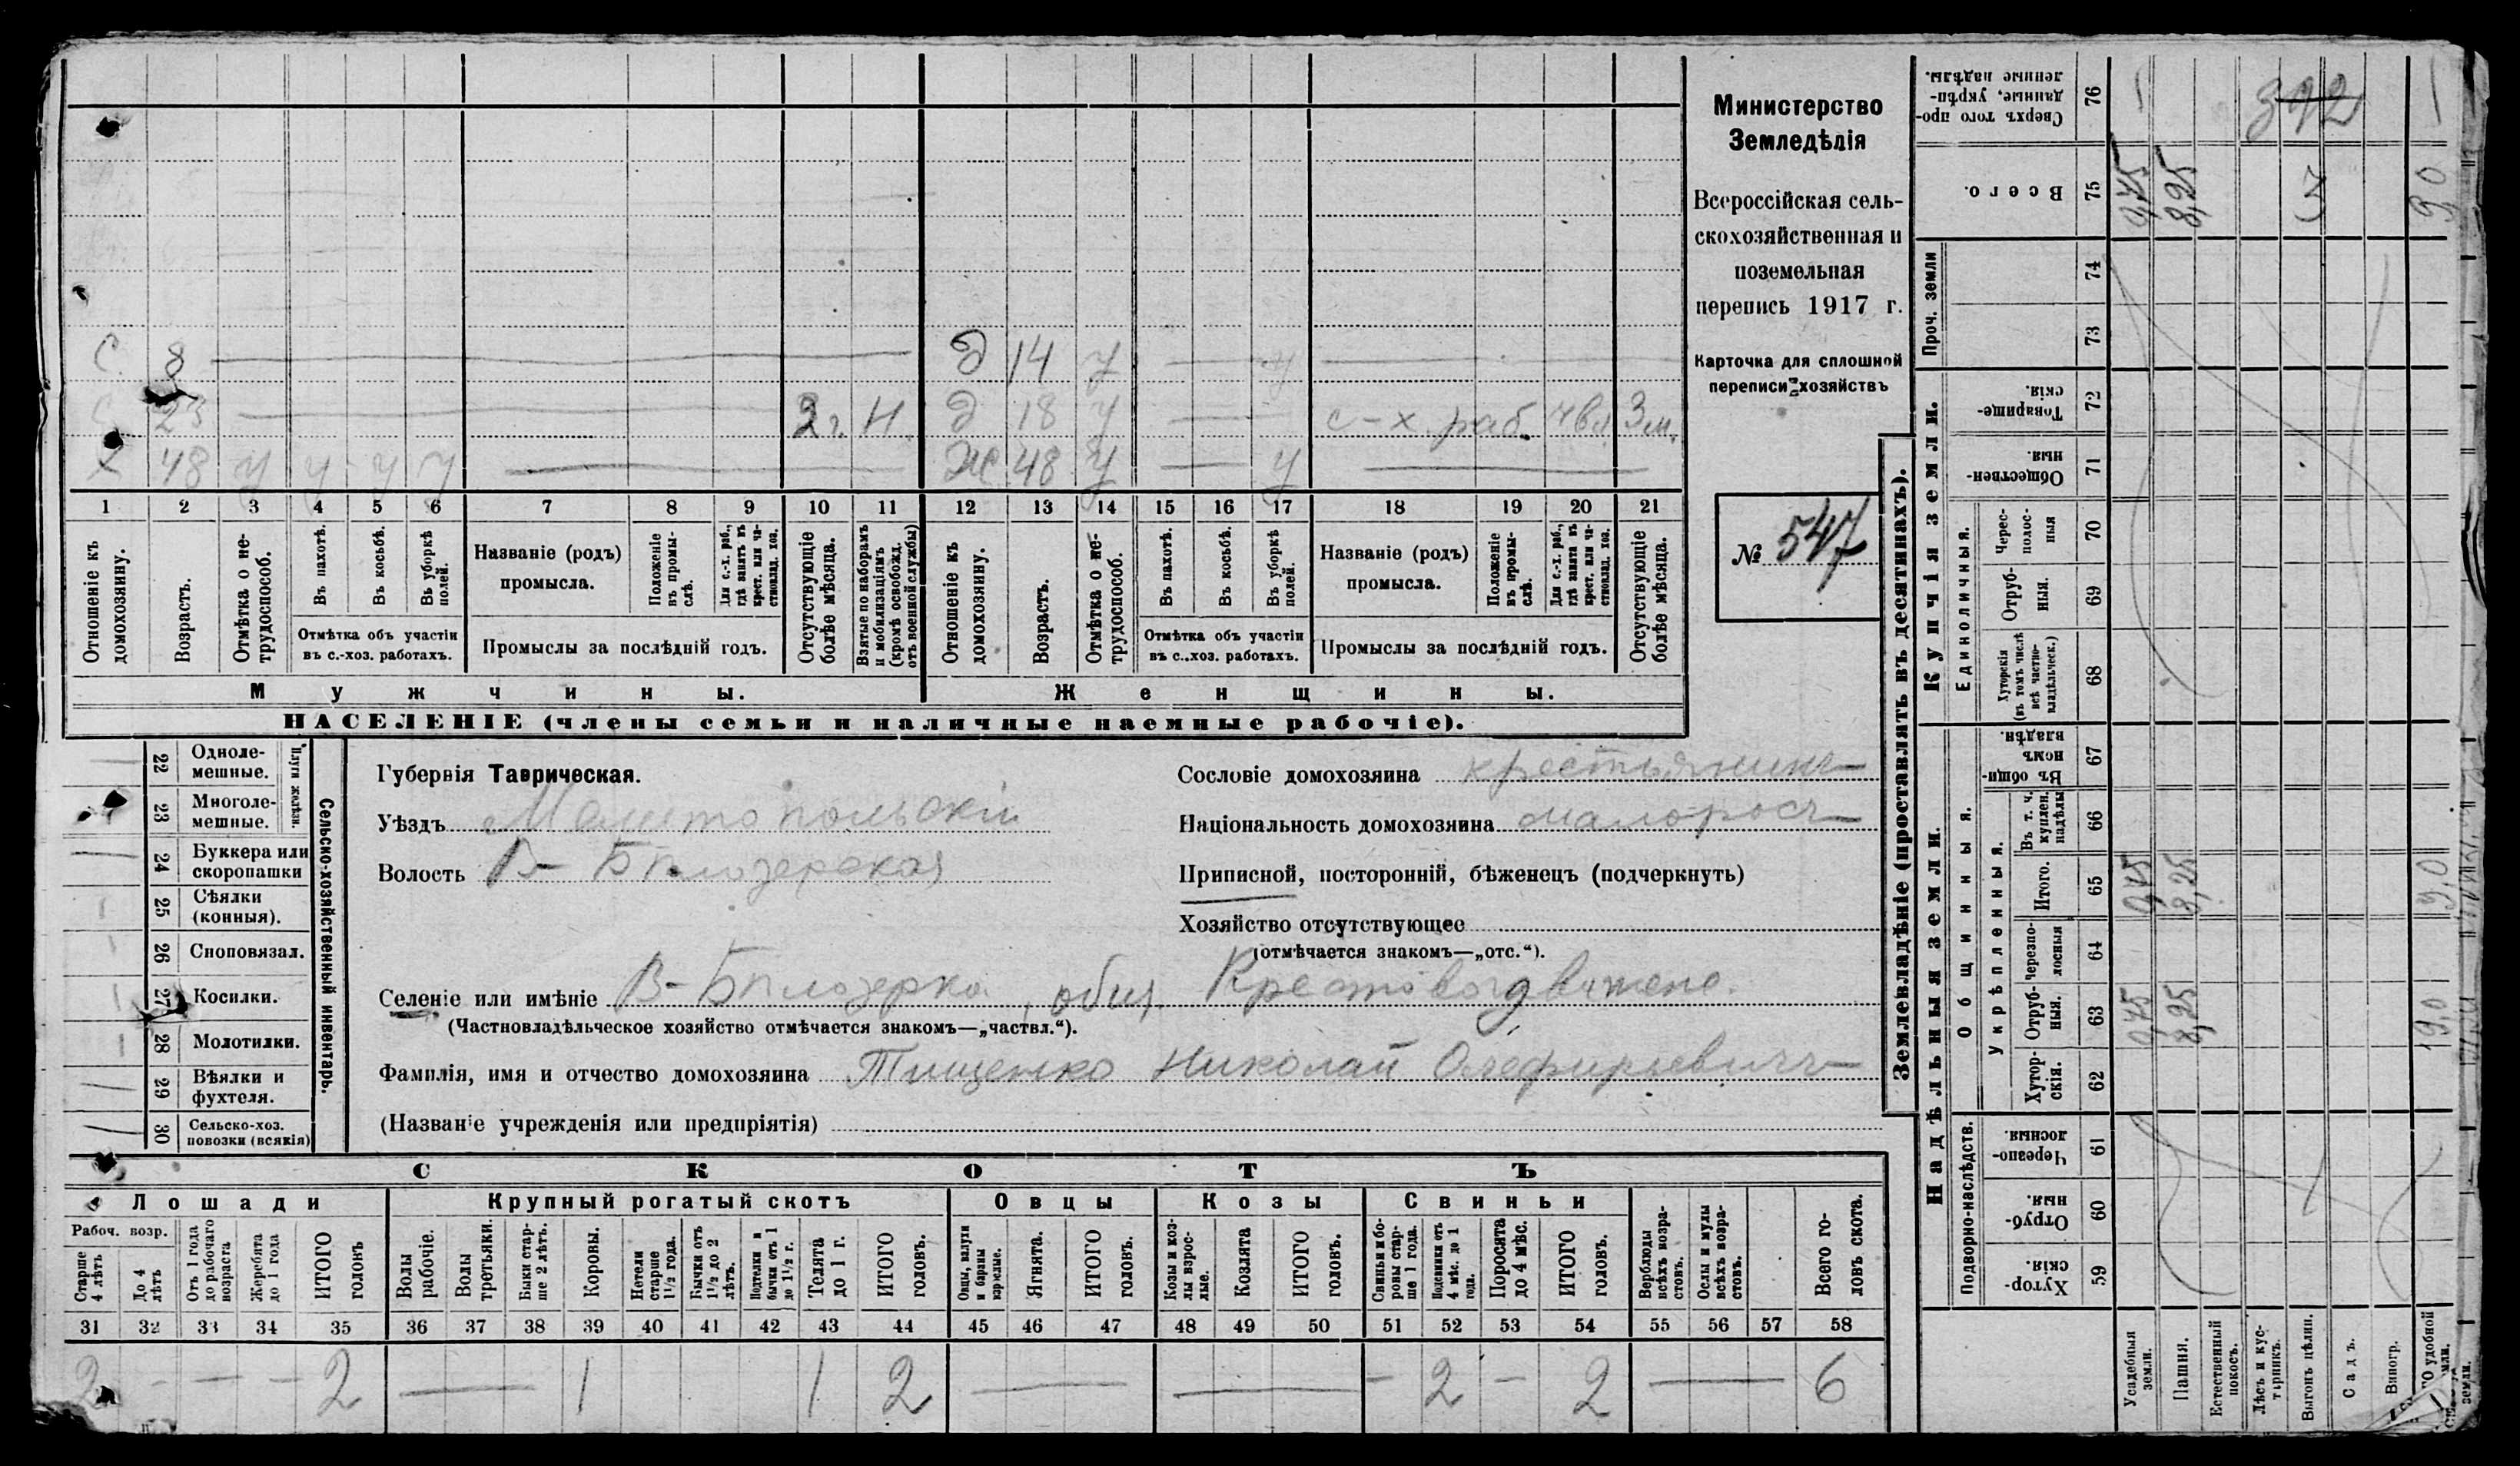 Министерство
Земледѣлія
Всероссійская сель-
скохозяйственная и
поземельная
перепись 1917 г.
Карточка для сплошной
переписи хозяйствъ
№ 547
С. 8 Д 14 у у
С 23 2 г. Н. Д 18 у с-х. раб. чвл 3 м.
Х 48 у у у у Ж 48 у у
1 2 3 4 5 6 7 8 9 10 11 12 13 14 15 16 17 18 19 20 21
Отношеніе къ домохозяину.
Возрастъ.
Отмѣтка о не-трудоспособ.
Въ пахотѣ.
Въ косьбѣ.
Въ уборкѣ полей.
Отмѣтка объ участіи
въ с.-хоз. работахъ.
Названіе (родъ)
промысла.
Положеніе въ промы-слѣ.
Для с.-х. раб., гдѣ занятъ въ крест. или ча-стновлад. хоз.
Промыслы за послѣдній годъ.
Отсутствующіе болѣе мѣсяца.
Взятые по наборамъ и мобилизаціямъ (кромѣ освобожд. отъ военной службы)
Отношеніе къ домохозяину.
Возрастъ.
Отмѣтка о не-трудоспособ.
Въ пахотѣ.
Въ косьбѣ.
Въ уборкѣ полей.
Отмѣтка объ участіи
въ с.-хоз. работахъ.
Названіе (родъ)
промысла.
Положеніе въ промы-слѣ.
Для с.-х. раб., гдѣ занята въ крест. или ча-стновлад. хоз.
Промыслы за послѣдній годъ.
Отсутствующіе болѣе мѣсяца.
Мужчины. Женщины.
НАСЕЛЕНІЕ (члены семьи и наличные наемные рабочіе).
Сельско-хозяйственный инвентарь.
Плуги желѣзн.
22 Одноле-мешные.
23 Многоле-мешные.
24 Буккера или скоропашки
25 Сѣялки (конныя).
26 Сноповязал.
27 Косилки.
28 Молотилки.
29 Вѣялки и фухтеля.
30 Сельско-хоз. повозки (всякія)
Губернія Таврическая.
Уѣздъ Мелитопольскій
Волость В-Бѣлозерская
Сословіе домохозяина крестьянинъ
Національность домохозяина малоросъ
Приписной, посторонній, бѣженецъ (подчеркнуть)
Хозяйство отсутствующее
(отмѣчается знакомъ—„отс.“).
Селеніе или имѣніе В-Бѣлозерка, общ. Крестовоздвижен.
(Частновладѣльческое хозяйство отмѣчается знакомъ—„частвл.“).
Фамилія, имя и отчество домохозяина Тищенко Николай Олефирьевичъ
(Названіе учрежденія или предпріятія)
СКОТЪ
Лошади Крупный рогатый скотъ Овцы Козы Свиньи
Рабоч. возр.
Старше 4 лѣтъ
До 4 лѣтъ
Отъ 1 года до рабочаго возраста
Жеребята до 1 года
ИТОГО головъ
Волы рабочіе.
Волы третьяки.
Быки стар-ше 2 лѣтъ.
Коровы.
Нетели старше 1½ года.
Бычки отъ 1½ до 2 лѣтъ.
Подтелки и бычки отъ 1 до 1½ г.
Телята до 1 г.
ИТОГО головъ.
Овцы, валухи и бараны взрослые.
Ягнята.
ИТОГО головъ.
Козы и коз-лы взрос-лые.
Козлята
ИТОГО головъ.
Свиньи и бо-ровы стар-ше 1 года.
Подсвинки отъ 4 мѣс. до 1 года.
Поросята до 4 мѣс.
ИТОГО головъ.
Верблюды всѣхъ возра-стовъ.
Ослы и мулы всѣхъ возра-стовъ.
Всего го-ловъ скота.
31 32 33 34 35 36 37 38 39 40 41 42 43 44 45 46 47 48 49 50 51 52 53 54 55 56 57 58
2 - - - 2 — 1 1 2 — — - 2 - 2 — 6
Землевладѣніе (проставлять въ десятинахъ).
Надѣльныя земли. Купчія земли. Проч. земли
Подворно-наслѣдств.
Общинныя.
Укрѣпленныя.
Единоличныя.
Хутор-скія. 59
Отруб-ныя. 60
Черезпо-лосныя. 61
Хутор-скія. 62
Отруб-ныя. 63
Черезпо-лосныя 64
Итого. 65
Въ т. ч. куплен. надѣлы 66
Въ общин-номъ владѣн. 67
Хуторскія (въ томъ числѣ всѣ частно-владѣльческ.) 68
Отруб-ныя. 69
Черес-полос-ныя 70
Обществен-ныя. 71
Товарище-скія. 72
73
74
Всего. 75
Сверхъ того про-данные, укрѣп-ленные надѣлы. 76
Усадебныя земли. 0,75 0,75 0,75
Пашня. 8,25 8,25 8,25
Естественный покосъ.
Лѣсъ и кус-тарникъ.
Выгонъ цѣлин.
Садъ.
Виногр.
9,0 9,0 9,0
392
3